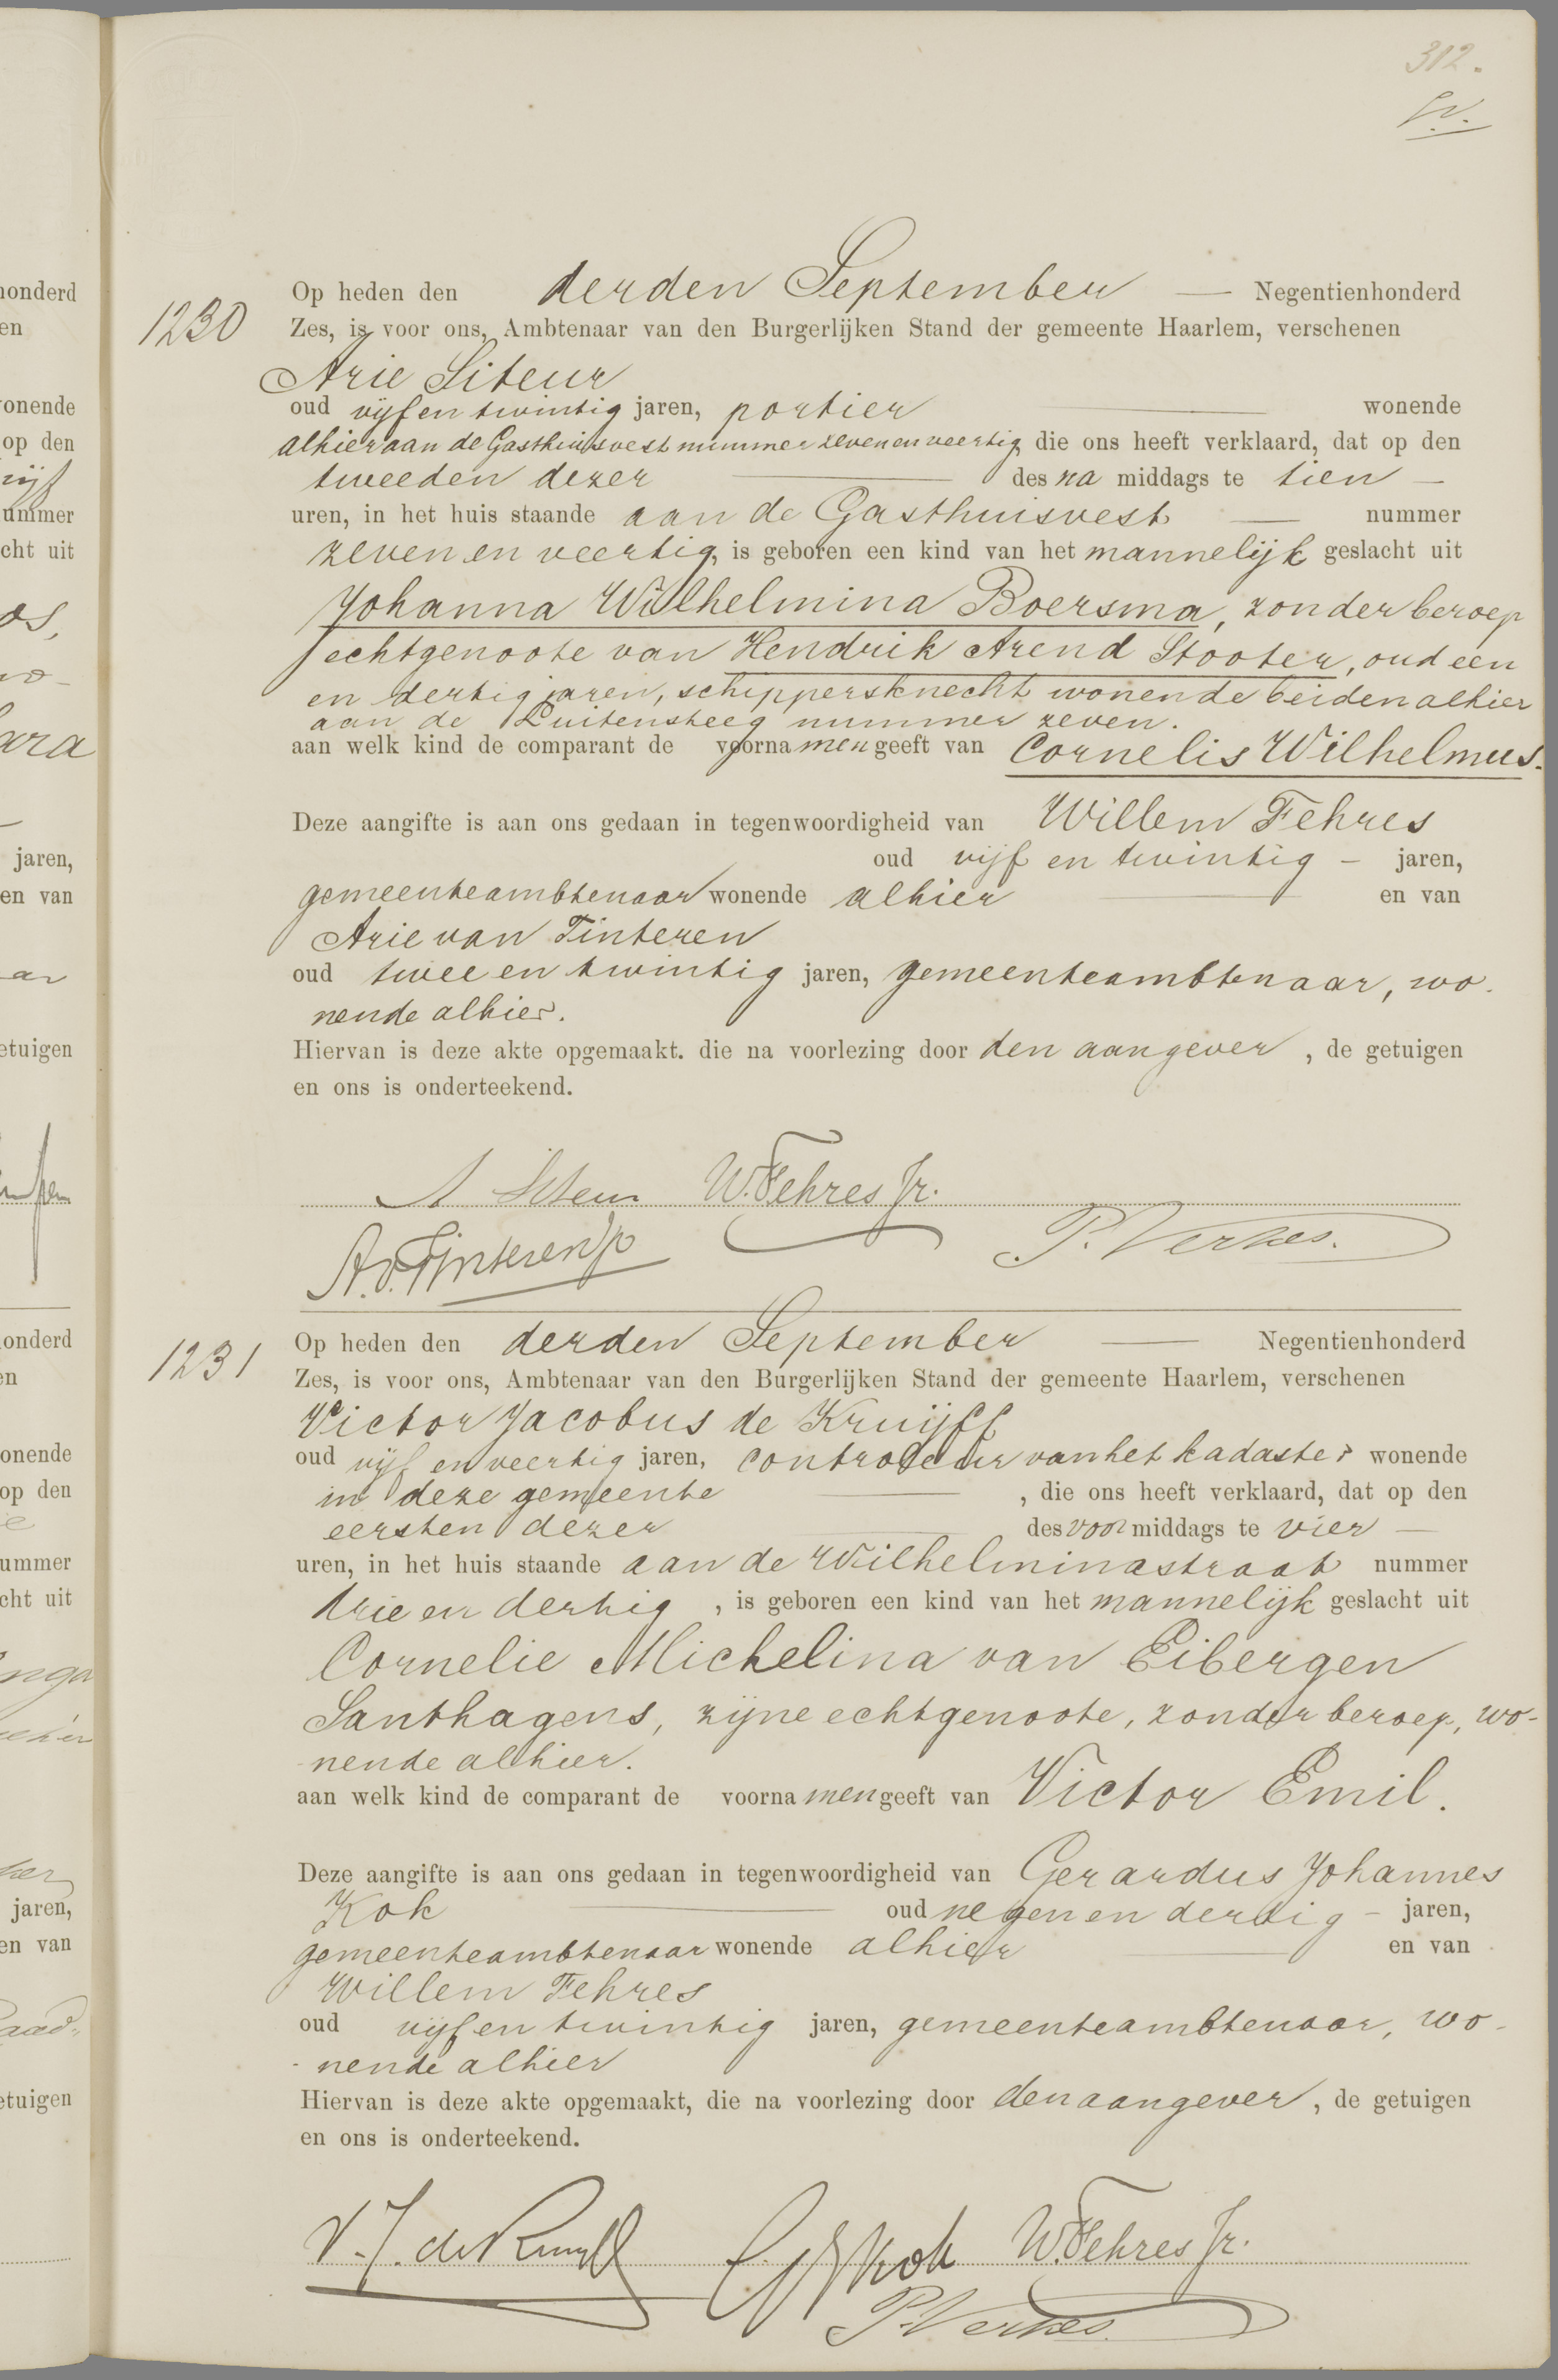 312.
1230
Op heden den derden September — Negentienhonderd
Zes, is voor ons, Ambtenaar van den Burgerlijken Stand der gemeente Haarlem, verschenen
Arie Siteur
oud vijf en twintig jaren, portier — wonende
alhier aan de Gasthuisvest nummer zeven en veertig, die ons heeft verklaard, dat op den
tweeden dezer — des na middags te tien —
uren, in het huis staande aan de Gasthuisvest — nummer
zeven en veertig, is geboren een kind van het mannelijk geslacht uit
Johanna Wilhelmina Boersma, zonder beroep
echtgenoote van Hendrik Arend Stooter, oud een
en dertig jaren, schippersknecht wonende beiden alhier
aan de Luitensteeg nummer zeven.
aan welk kind de comparant de voornamen geeft van Cornelis Wilhelmus.
Deze aangifte is aan ons gedaan in tegenwoordigheid van Willem Fehres
oud vijf en twintig – jaren,
gemeenteambtenaar wonende alhier — en van
Arie van Tinteren
oud twee en twintig jaren, gemeenteambtenaar, wo-
nende alhier.
Hiervan is deze akte opgemaakt. die na voorlezing door den aangever, de getuigen
en ons is onderteekend.
A Siteur W. Fehres Jr.
A. v. Tinteren P. Verkes.
1231
Op heden den derden September — Negentienhonderd
Zes, is voor ons, Ambtenaar van den Burgerlijken Stand der gemeente Haarlem, verschenen
Victor Jacobus de Kruijff
oud vijf en veertig jaren, controleur van het kadaster wonende
in deze gemeente — , die ons heeft verklaard, dat op den
eersten dezer — des voormiddags te vier —
uren, in het huis staande aan de Wilhelminastraat nummer
drie en dertig, is geboren een kind van het mannelijk geslacht uit
Cornelie Michelina van Eibergen
Santhagens, zijne echtgenoote, zonder beroep, wo-
nende alhier.
aan welk kind de comparant de voornamen geeft van Victor Emil.
Deze aangifte is aan ons gedaan in tegenwoordigheid van Gerardus Johannes
Kok — oud negen en dertig – jaren,
gemeenteambtenaar wonende alhier — en van
Willem Fehres
oud vijf en twintig jaren, gemeenteambtenaar, wo-
nende alhier
Hiervan is deze akte opgemaakt, die na voorlezing door den aangever, de getuigen
en ons is onderteekend.
V. J. de Kruijff G J Kok W. Fehres Jr.
P. Verkes